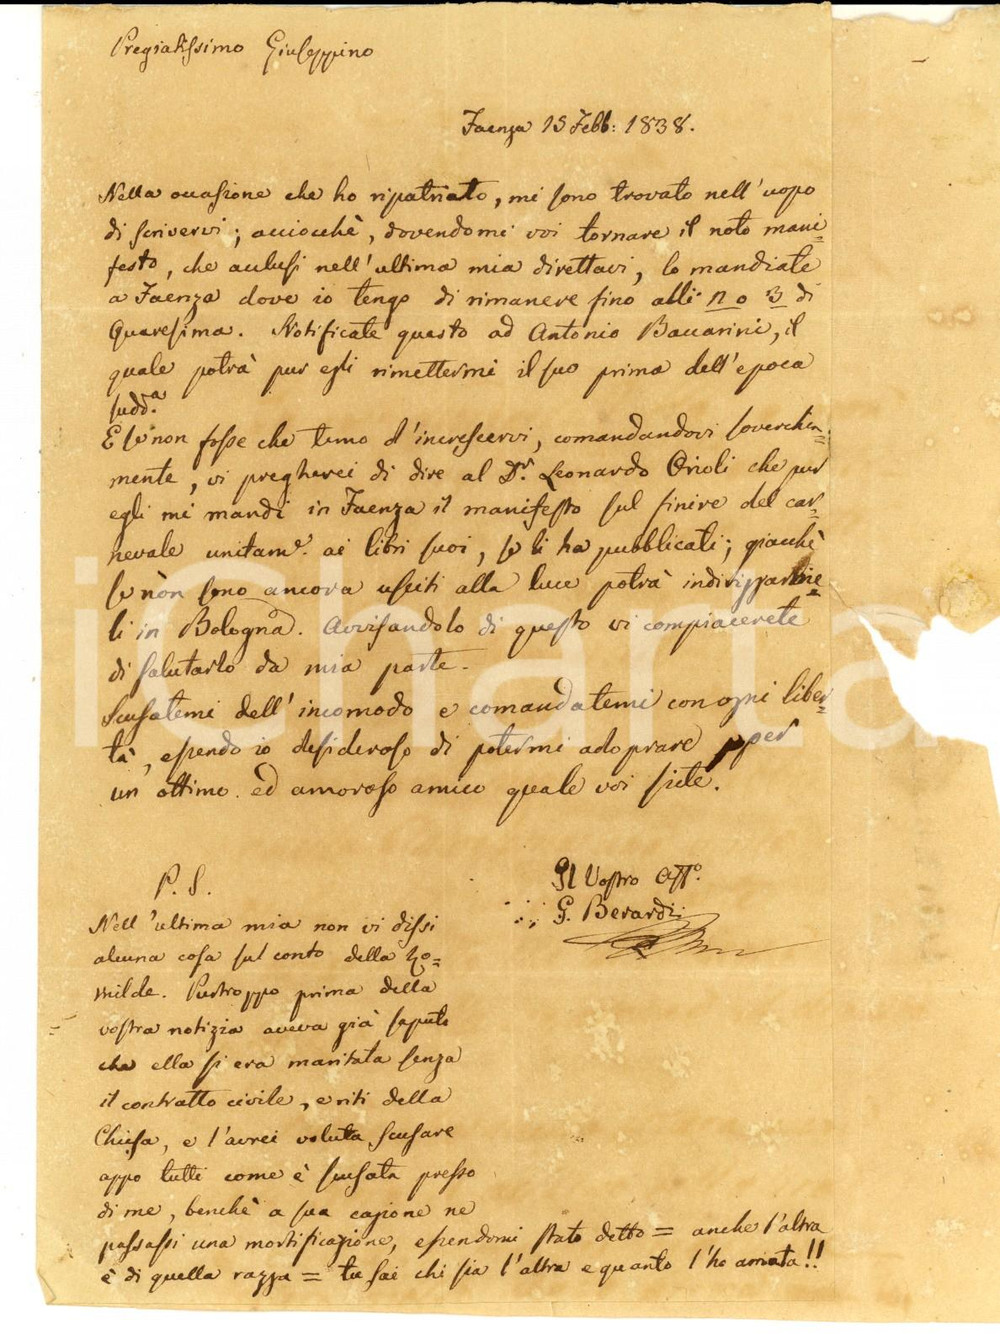 Pregiatissimo Giuseppino
Faenza 15 Febb: 1838.
Nella occasione che ho ripatriato, mi sono trovato nell'uopo
di scrivervi; acciocchè, dovendomi voi tornare il noto mani=
festo, che acclusi nell'ultima mia direttavi, lo mandiate
a Faenza dove io tengo di rimanere fino alli 2 o 3 di
Quaresima. Notificate questo ad Antonio Baccarini, il
quale potrà pur egli rimettermi il suo prima dell'epoca
sudd.a
E se non fosse che temo d'increscervi, comandandovi soverchia=
mente, vi pregherei di dire al D.r Leonardo Orioli che pur
egli mi mandi in Faenza il manifesto sul finire del car=
nevale unitam.e ai libri suoi, se li ha pubblicati; giacchè
se non sono ancora usciti alla luce potrà indirizzarme=
li in Bologna. Avvisandolo di questo vi compiacerete
di salutarlo da mia parte.
Scusatemi dell'incomodo e comandatemi con ogni liber=
tà, essendo io desideroso di potermi adoprare per
un ottimo ed amoroso amico quale voi siete.
Il Vostro Aff.o
G. Berardi
P. S.
Nell'ultima mia non vi dissi
alcuna cosa sul conto della Zo=
milde. Purtroppo prima della
vostra notizia aveva già saputo
che ella si era maritata senza
il contratto civile, e riti della
Chiesa, e l'avrei voluta scusare
appo tutti come è scusata presso
di me, benchè a sua cagione ne
passassi una mortificazione, essendomi stato detto = anche l'altra
è di quella razza = tu sai chi sia l'altra e quanto l'ho amata!!
iCharta